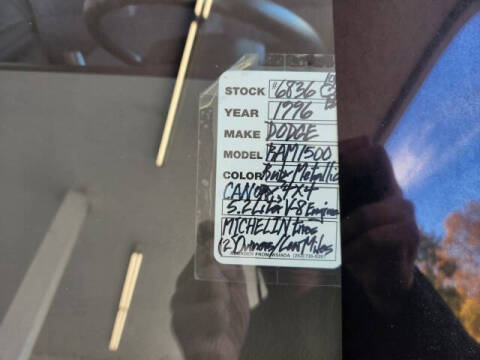 STOCK #6836
YEAR 1996
MAKE DODGE
MODEL RAM 1500
COLOR Metallic
CANOPY, 4x4
5.2 Liter V-8 Engine
MICHELIN tires
(2) Owners/Low Miles